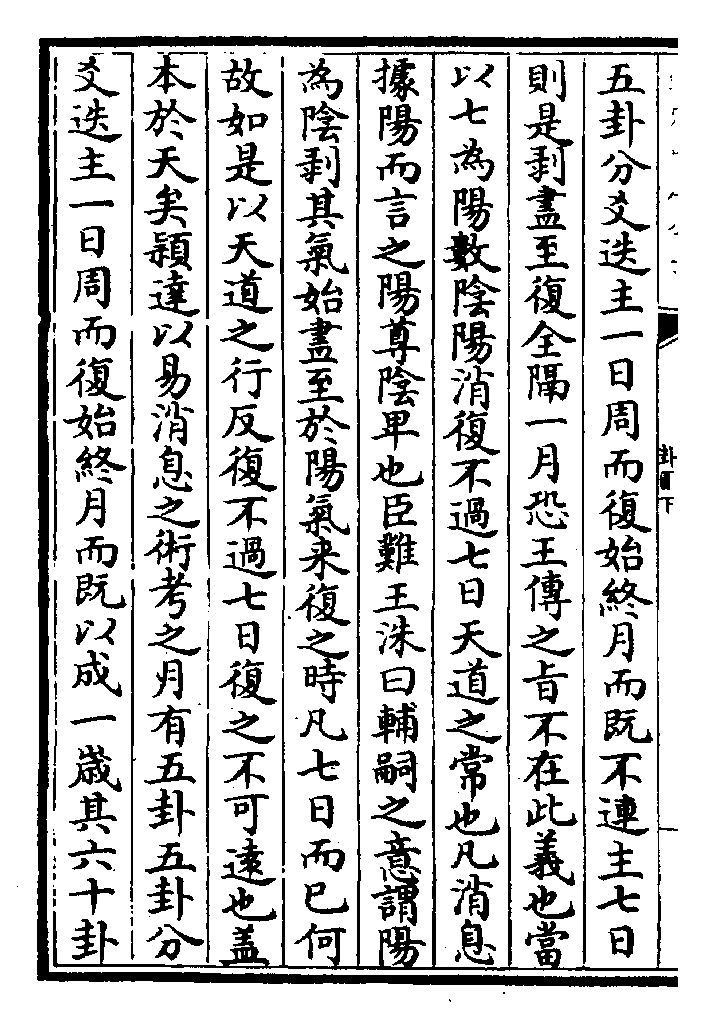 五卦分爻迭主一日周而復始終月而既不連主七日
則是剥盡至復全隔一月恐王傳之㫖不在此義也當
以七為陽數陰陽消復不過七日天道之常也凡消息
據陽而言之陽尊陰卑也臣難王洙曰輔嗣之意謂陽
為陰剥其氣始盡至於陽氣来復之時凡七日而已何
故如是以天道之行反復不過七日復之不可逺也盖
本於天矣頴達以易消息之術考之月有五卦五卦分
爻迭主一日周而復始終月而既以成一嵗其六十卦
卦圖下